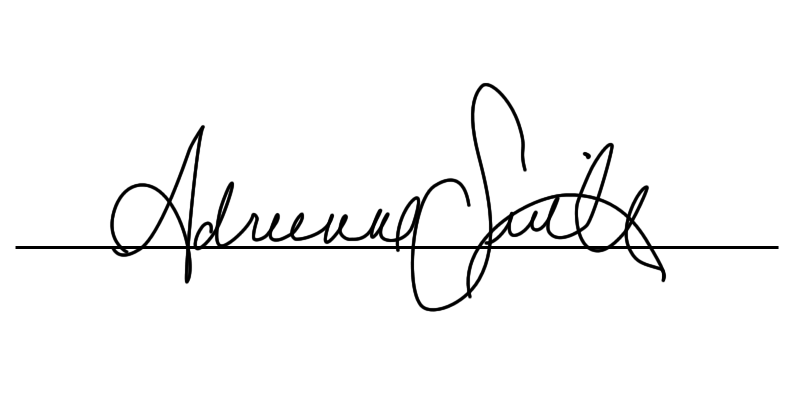 Adrienne Smith